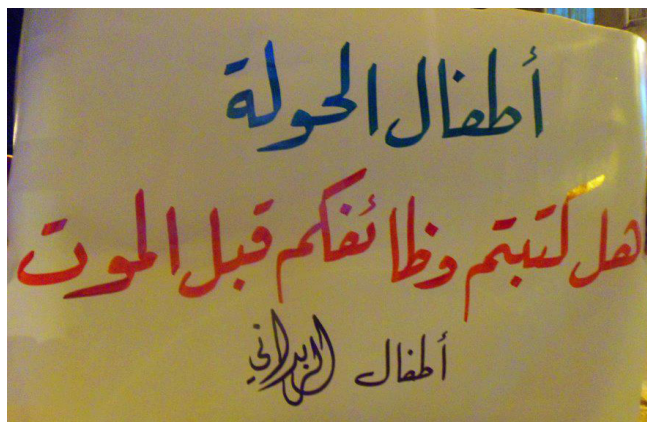 أطفال الحولة
هل كتبتم وظائفكم قبل الموت
أطفال الزبداني